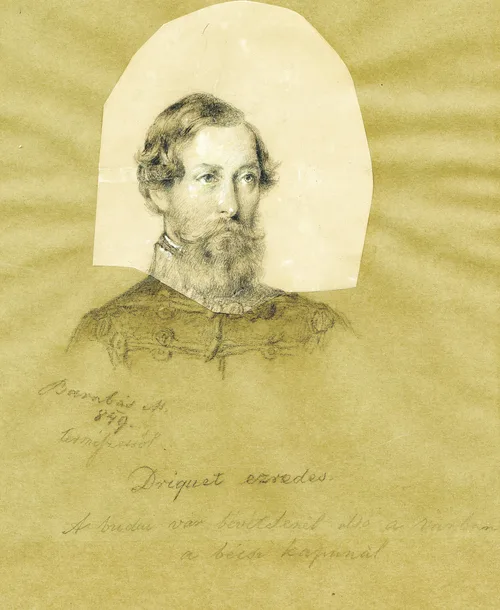 Barabás M.
849.
természetről
Driquet ezredes.
A budai vár bevételénél első a várban
a bécsi kapunál